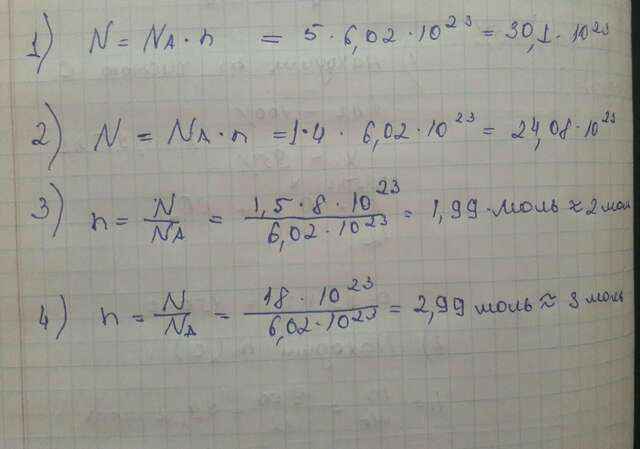 1) N = NA · n = 5 · 6,02 · 10²³ = 30,1 · 10²³
2) N = NA · n = 1·4 · 6,02 · 10²³ = 24,08 · 10²³
3) n = N/NA = 1,5 · 8 · 10²³ / 6,02 · 10²³ = 1,99 · моль ≈ 2 мол
4) n = N/NA = 18 · 10²³ / 6,02 · 10²³ = 2,99 моль ≈ 3 моль